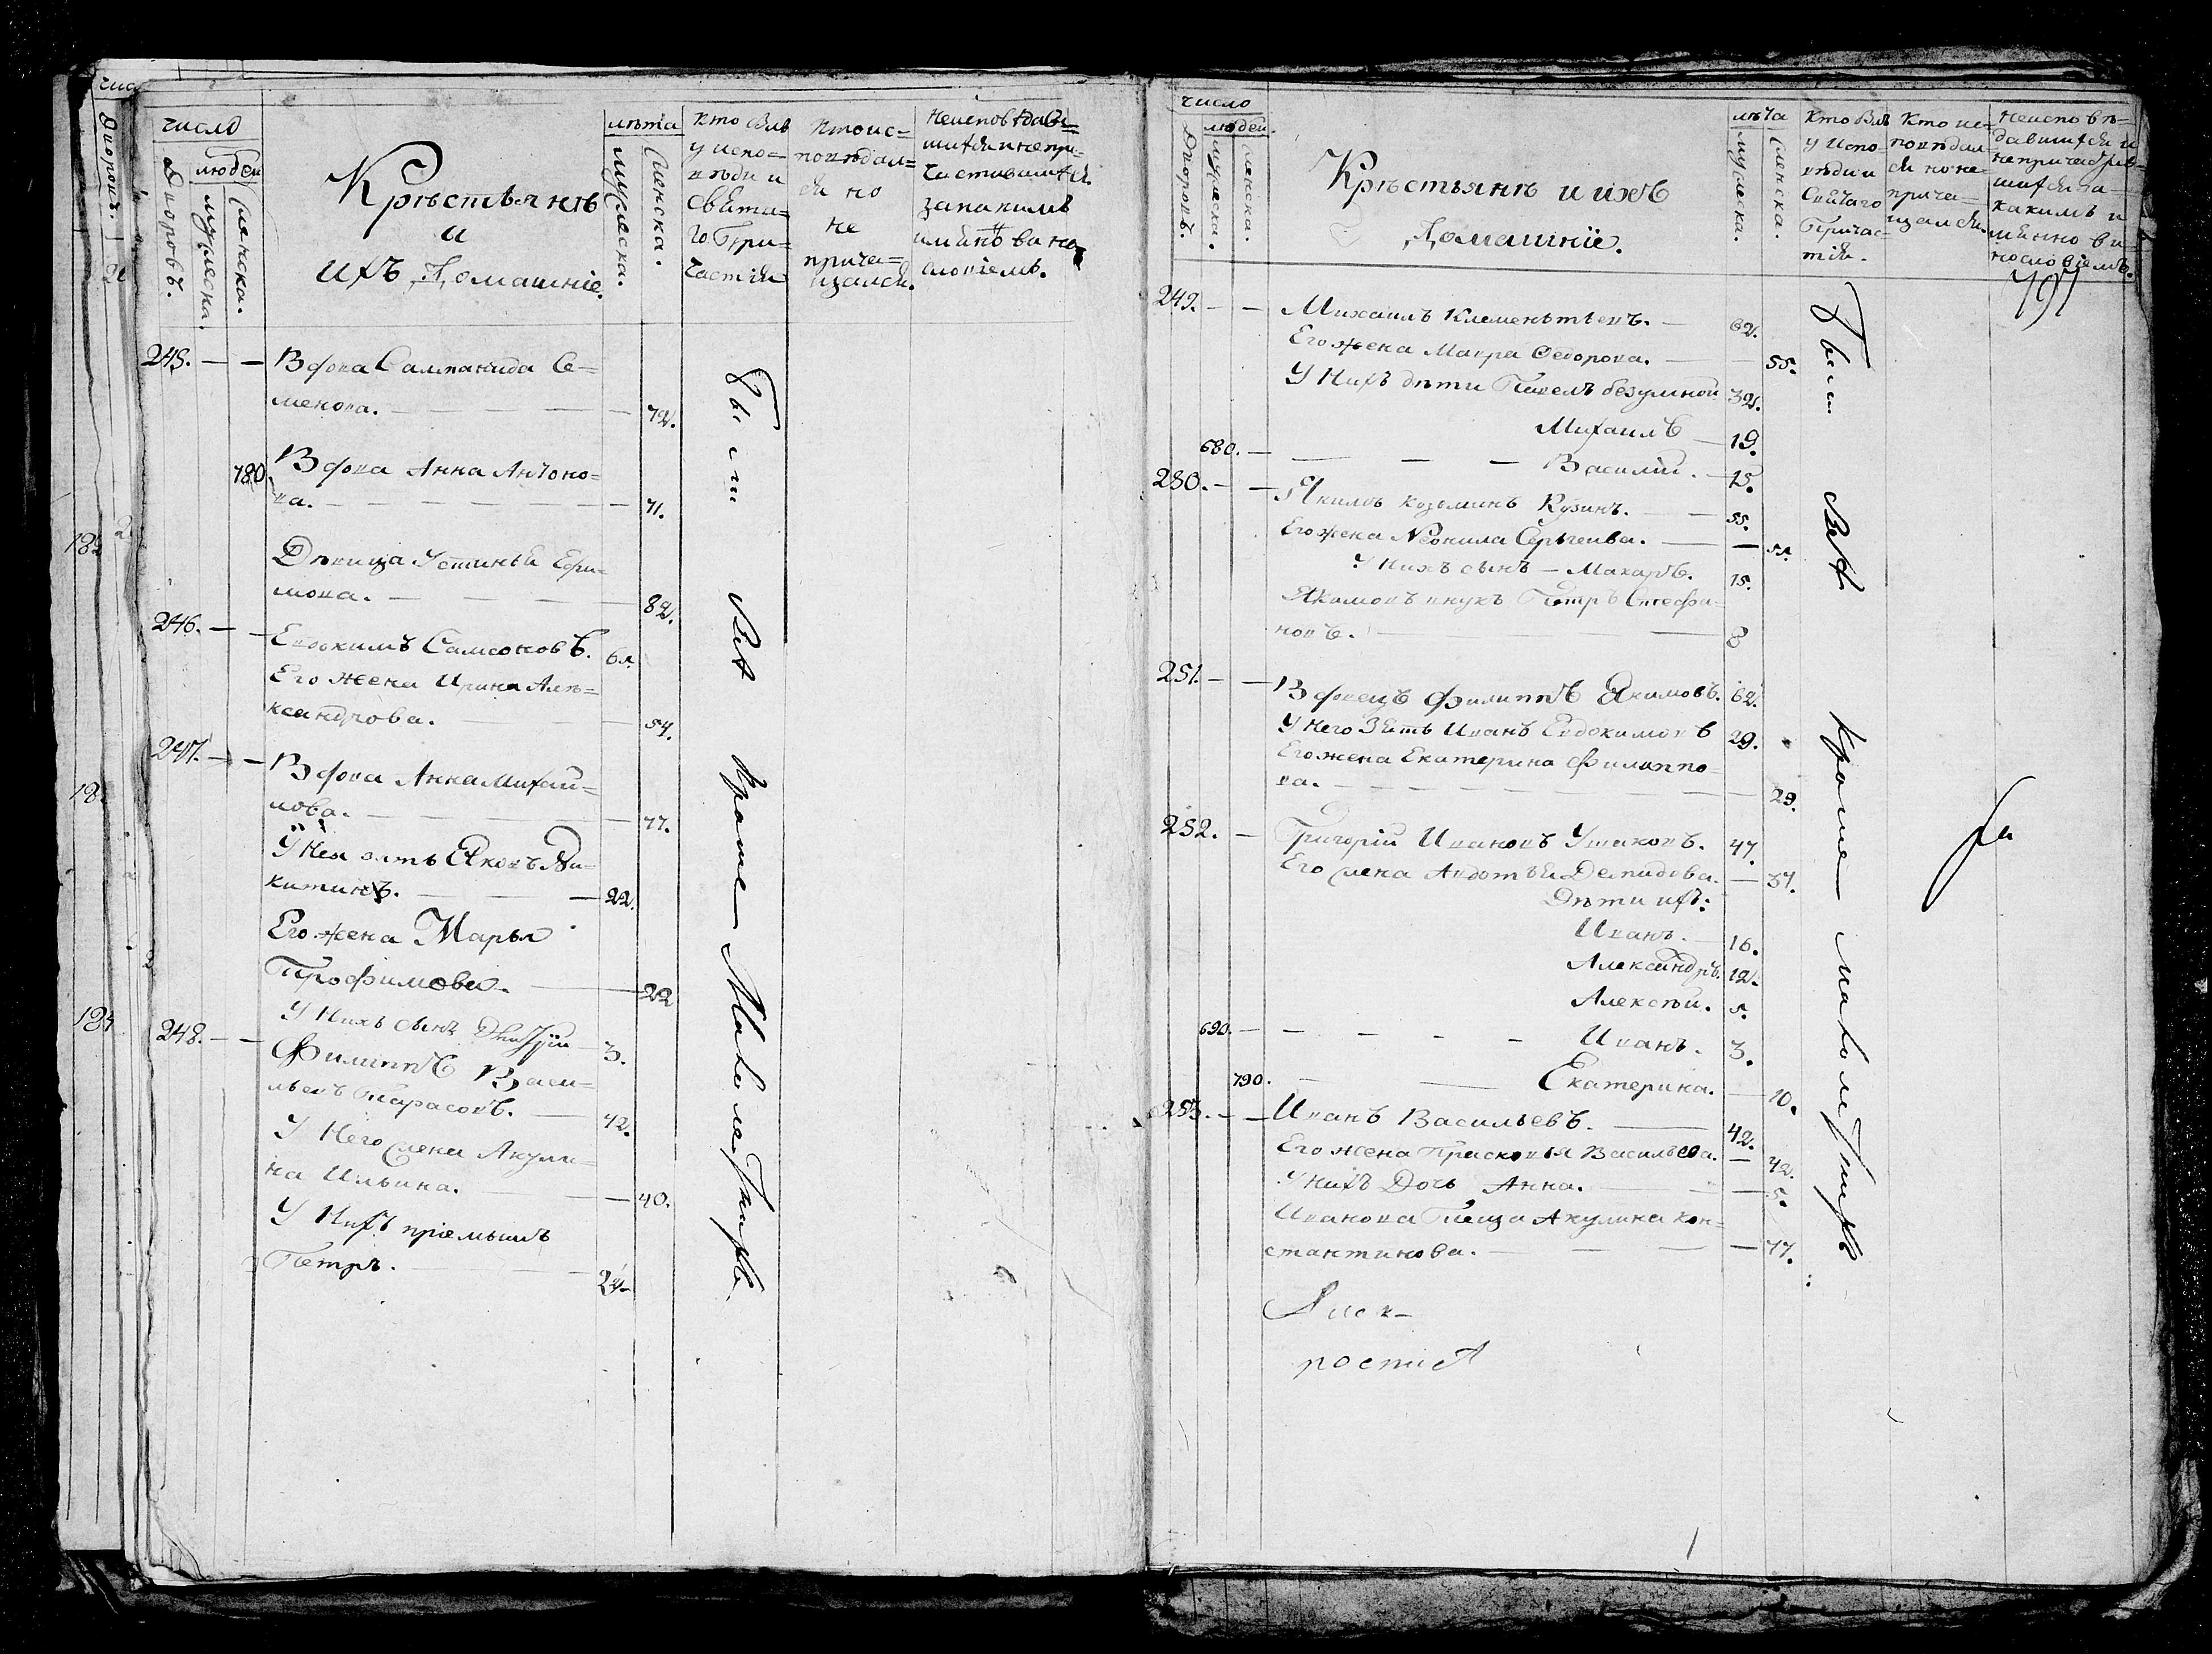 число
людей
Дворовъ.
мужеска.
женска.
Крѣстьянѣ
и
ихъ Домашніе.
лѣта
мужеска.
женска.
Кто былъ
у испо=
вѣди и
Свята=
го При=
частія
Кто ис=
повѣдал=
ся но
не
прича=
щался.
Неисповѣдав=
шихся и непри=
частившихся.
за какимъ
имянно вино
словіемъ.
245. — — Вдова Саламанида Се=
менова. — 72.
780. Вдова Анна Антоно=
ва. — 71.
Дѣвица Устинья Ефи=
мова. — 82.
246. — — Евдокимъ Самсоновъ. 61.
Его жена Ирина Але=
ксандрова. — 54.
247. — — Вдова Анна Михай=
лова. — 77.
У Нея зять Яковъ Ни=
китинъ. — 22.
Его жена Марья
Трофимова. — 22
У Нихъ сынъ Дмитрій 3.
248. — — Филиппъ Васи=
льевъ Тарасовъ. — 42.
У Него жена Акули=
на Ильина. — 40.
У Нихъ пріемышъ
Петръ. — 24.
были всѣ кроме малолетныхъ
число
людей.
Дворовъ.
мужеска.
женска.
Крѣстьянѣ и ихъ
Домашніе.
лѣта
мужеска.
женска.
Кто былъ
у Испо=
вѣди и
Святаго
Причас=
тія.
Кто ис=
повѣдал=
ся но не
прича=
щался.
Неисповѣ=
давшихся и
непричастив=
шихся за
какимъ и
мянно ви=
нословіемъ.
797
249. — — Михаилъ Клементьевъ. — 62.
Его жена Мавра Федорова. — 55.
У Нихъ дѣти Павелъ безумной 32.
Михаилъ — 19.
680. — Василій. — 15.
250. — — Якимъ Козьминъ Кузинъ. — 55.
Его жена Неонила Сергѣева. — 51.
У Нихъ сынъ — Макаръ. 15.
Якимовъ внукъ Петръ Стефа=
новъ. — 8
251. — — Вдовецъ Филиппъ Якимовъ. 62.
У Него Зять Иванъ Евдокимовъ 29.
Его жена Екатерина Филиппо=
ва. — 29.
252. — Григорій Ивановъ Ушаковъ. 47.
Его жена Авдотья Демидова. — 37.
Дѣти ихъ:
Иванъ. — 16.
Александръ. 12.
Алексѣй. 5.
690. — Иванъ. 3.
790. — Екатерина. — 10.
253. — — Иванъ Васильевъ. — 42.
Его жена Прасковья Васильева. — 42.
У нихъ Дочь Анна. — 5.
Иванова Теща Акулина Кон=
стантинова. — 77.
были всѣ кроме малолетныхъ